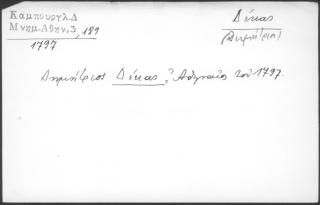 Καμπουργλ.Δ
Μνημ.Αθην,3,189
1797
Δέκας
(Δημήτριος)
Δημήτριος Δέκας, Ἀθηναῖος τοῦ 1797.